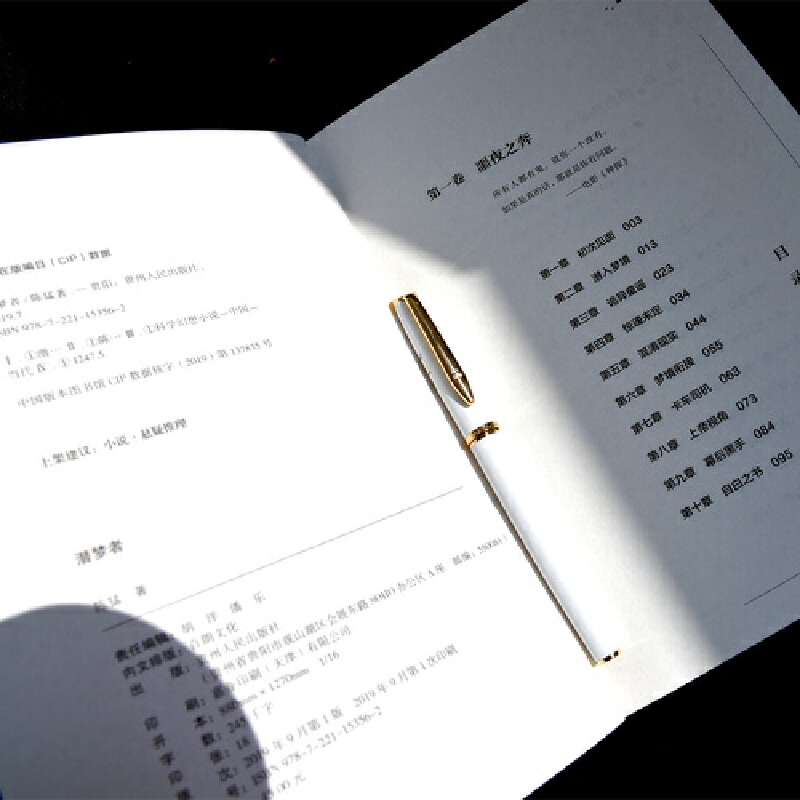 在版编目（CIP）数据
梦者 / 陈猛著. — 贵阳：贵州人民出版社，
2019.7
ISBN 978-7-221-15356-2
Ⅰ. ①潜… Ⅱ. ①陈… Ⅲ. ①科学幻想小说—中国—
当代 Ⅳ. ①I247.5
中国版本图书馆CIP数据核字（2019）第
上架建议：小说·悬疑推理
潜梦者
陈猛 著
责任编辑： 胡 洋 潘 乐
内文排版： 文化
出 版： 贵州人民出版社
（贵州省贵阳市观山湖区会展东路SOHO办公区A座 邮编：550081）
印刷（天津）有限公司
印 刷：
本： 1270mm 1/16
开
字 数： 245千字
印 张： 18
次： 2019年9月第1版 2019年9月第1次印刷
号： ISBN 978-7-221-15356-2
00元
目录
第一卷 噩夜之奔
所有人都有鬼，就你一个没有。
如果是真的话，那就是你有问题。
——电影《神探》
第一章 初次见面 003
第二章 潜入梦境 013
第三章 诡异童谣 023
第四章 惊魂未定 034
第五章 亚清现实 044
第六章 梦境衔接 055
第七章 卡车司机 063
第八章 上帝视角 073
第九章 幕后黑手 084
第十章 自白之书 095